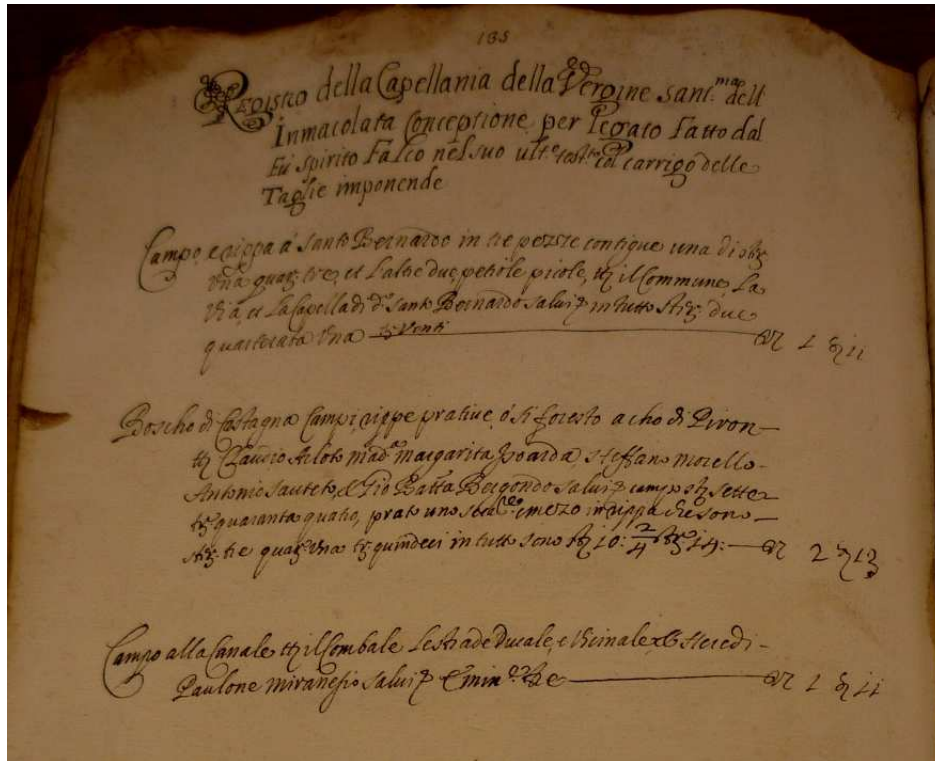 185
Registro della Capellania della Vergine sant.ma dell
Inmacolata Conceptione per Legato Fatto dal
Fu spirito Falco nel suo ult.o test.to col carrigo delle
Taglie imponende
Campo, e rippa á santo Bernardo in tre pezze contigue una di
una quar. tre, et L'altre due petiole picole, il Commune, La
via, et La Capella di d.o santo Bernardo salui in tutto due
quarterata una venti 1 11
Boscho di Castagna Campi, rippe prative, ó si foresto a cho di Piron
Claudio Arloto mad.a margarita steffano morello
Antonio sauteto, & Gio Batta Bergondo salui campo sette
quaranta quatro, prato uno e mezo in rippa che sono
tre quar. una quindeci in tutto sono 10: 2/4 14: 2 13
Campo alla Canale il Combale Le strade Ducale, e Vicinale, & Heredi
Paulone miranesio salui emin.e tre 1 11